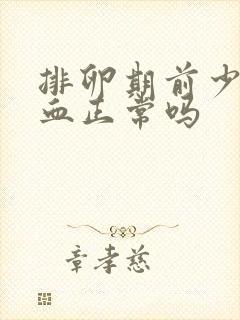 排卵期前少
血正常吗
章孝慈